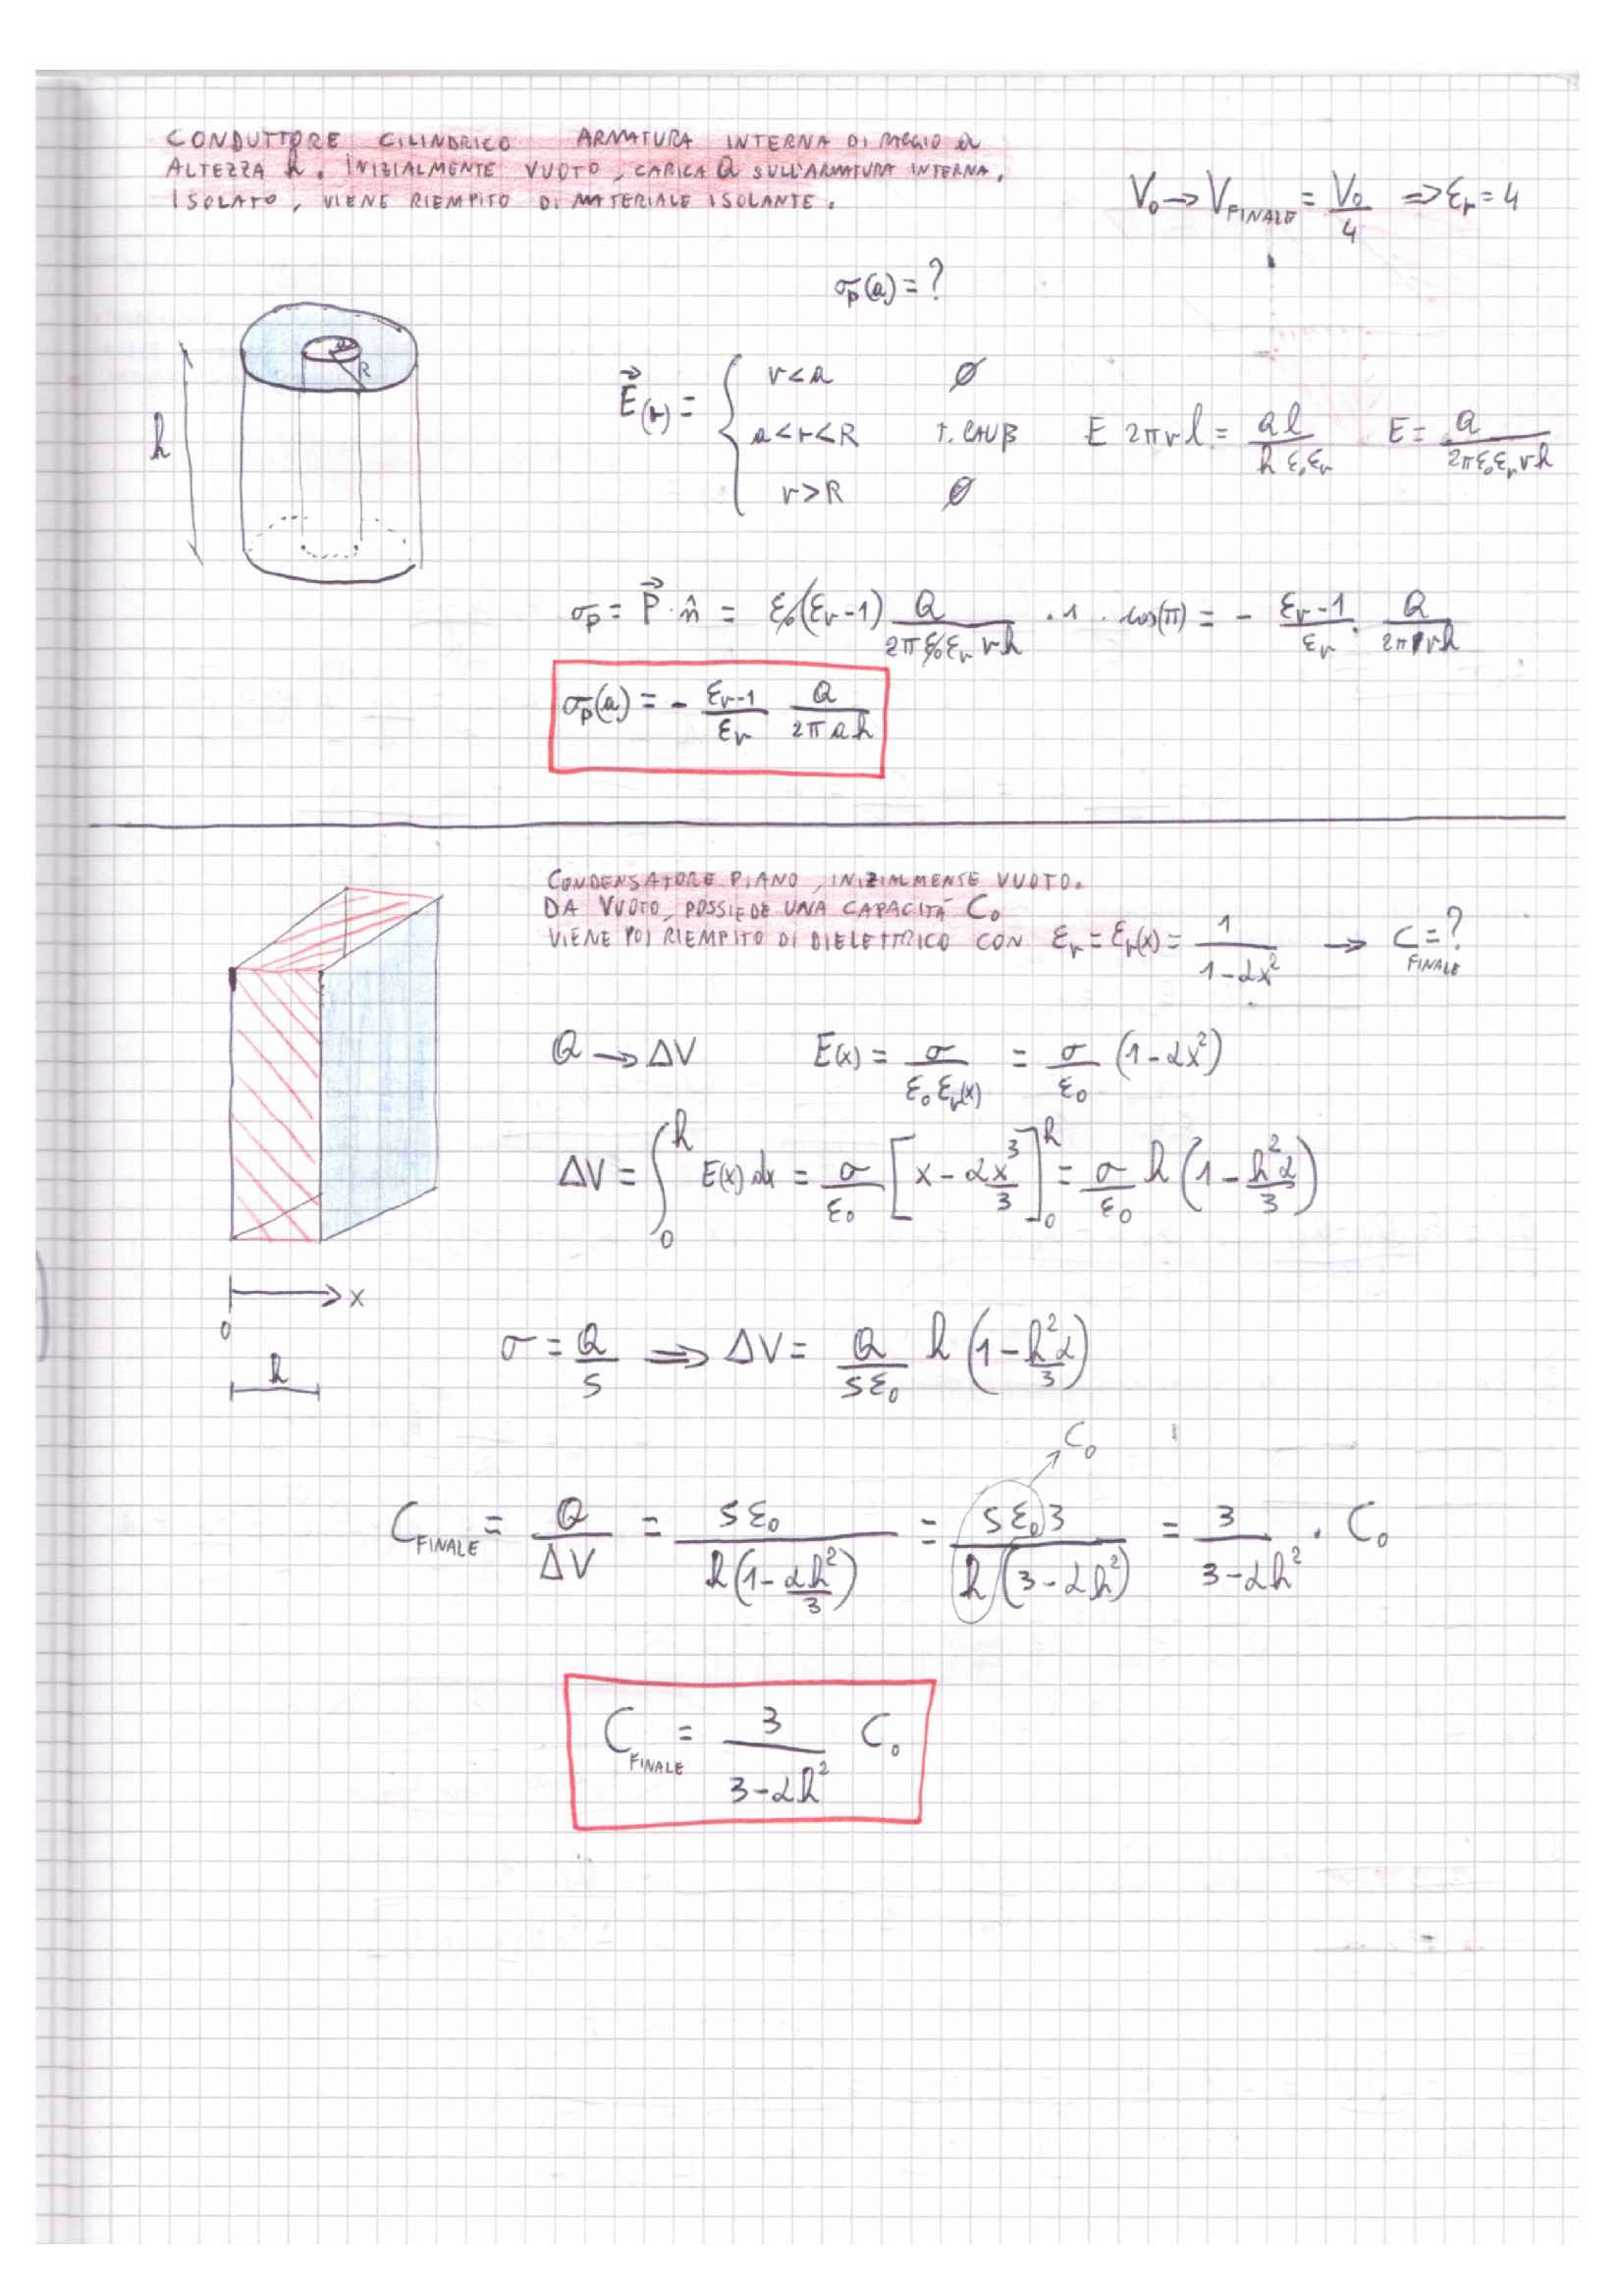 CONDUTTORE CILINDRICO ARMATURA INTERNA DI RAGGIO a
ALTEZZA h. INIZIALMENTE VUOTO, CARICA Q SULL'ARMATURA INTERNA.
ISOLATO, VIENE RIEMPITO DI MATERIALE ISOLANTE.
V₀ → V_FINALE = V₀/4 ⇒ εr = 4
σp(a) = ?
a
R
h
E⃗(r) = {
r<a ∅
a<r<R T. GAUß E 2πrl = Ql/(h ε₀εr) E = Q/(2πε₀εr r h)
r>R ∅
σp = P⃗ · n̂ = ε₀(εr-1) Q/(2πε₀εr r h) · 1 · cos(π) = - (εr-1)/εr · Q/(2πrh)
σp(a) = - (εr-1)/εr Q/(2πah)
CONDENSATORE PIANO, INIZIALMENTE VUOTO.
DA VUOTO, POSSIEDE UNA CAPACITÁ C₀
VIENE POI RIEMPITO DI DIELETTRICO CON εr = εr(x) = 1/(1-αx²) → C_FINALE = ?
Q → ΔV E(x) = σ/(ε₀ εr(x)) = σ/ε₀ (1-αx²)
ΔV = ∫₀ʰ E(x) dx = σ/ε₀ [x - αx³/3]₀ʰ = σ/ε₀ h (1 - h²α/3)
x
0
h
σ = Q/S ⇒ ΔV = Q/(Sε₀) h (1 - h²α/3)
C₀
C_FINALE = Q/ΔV = Sε₀/(h(1 - αh²/3)) = Sε₀3/(h(3-αh²)) = 3/(3-αh²) · C₀
C_FINALE = 3/(3-αh²) C₀